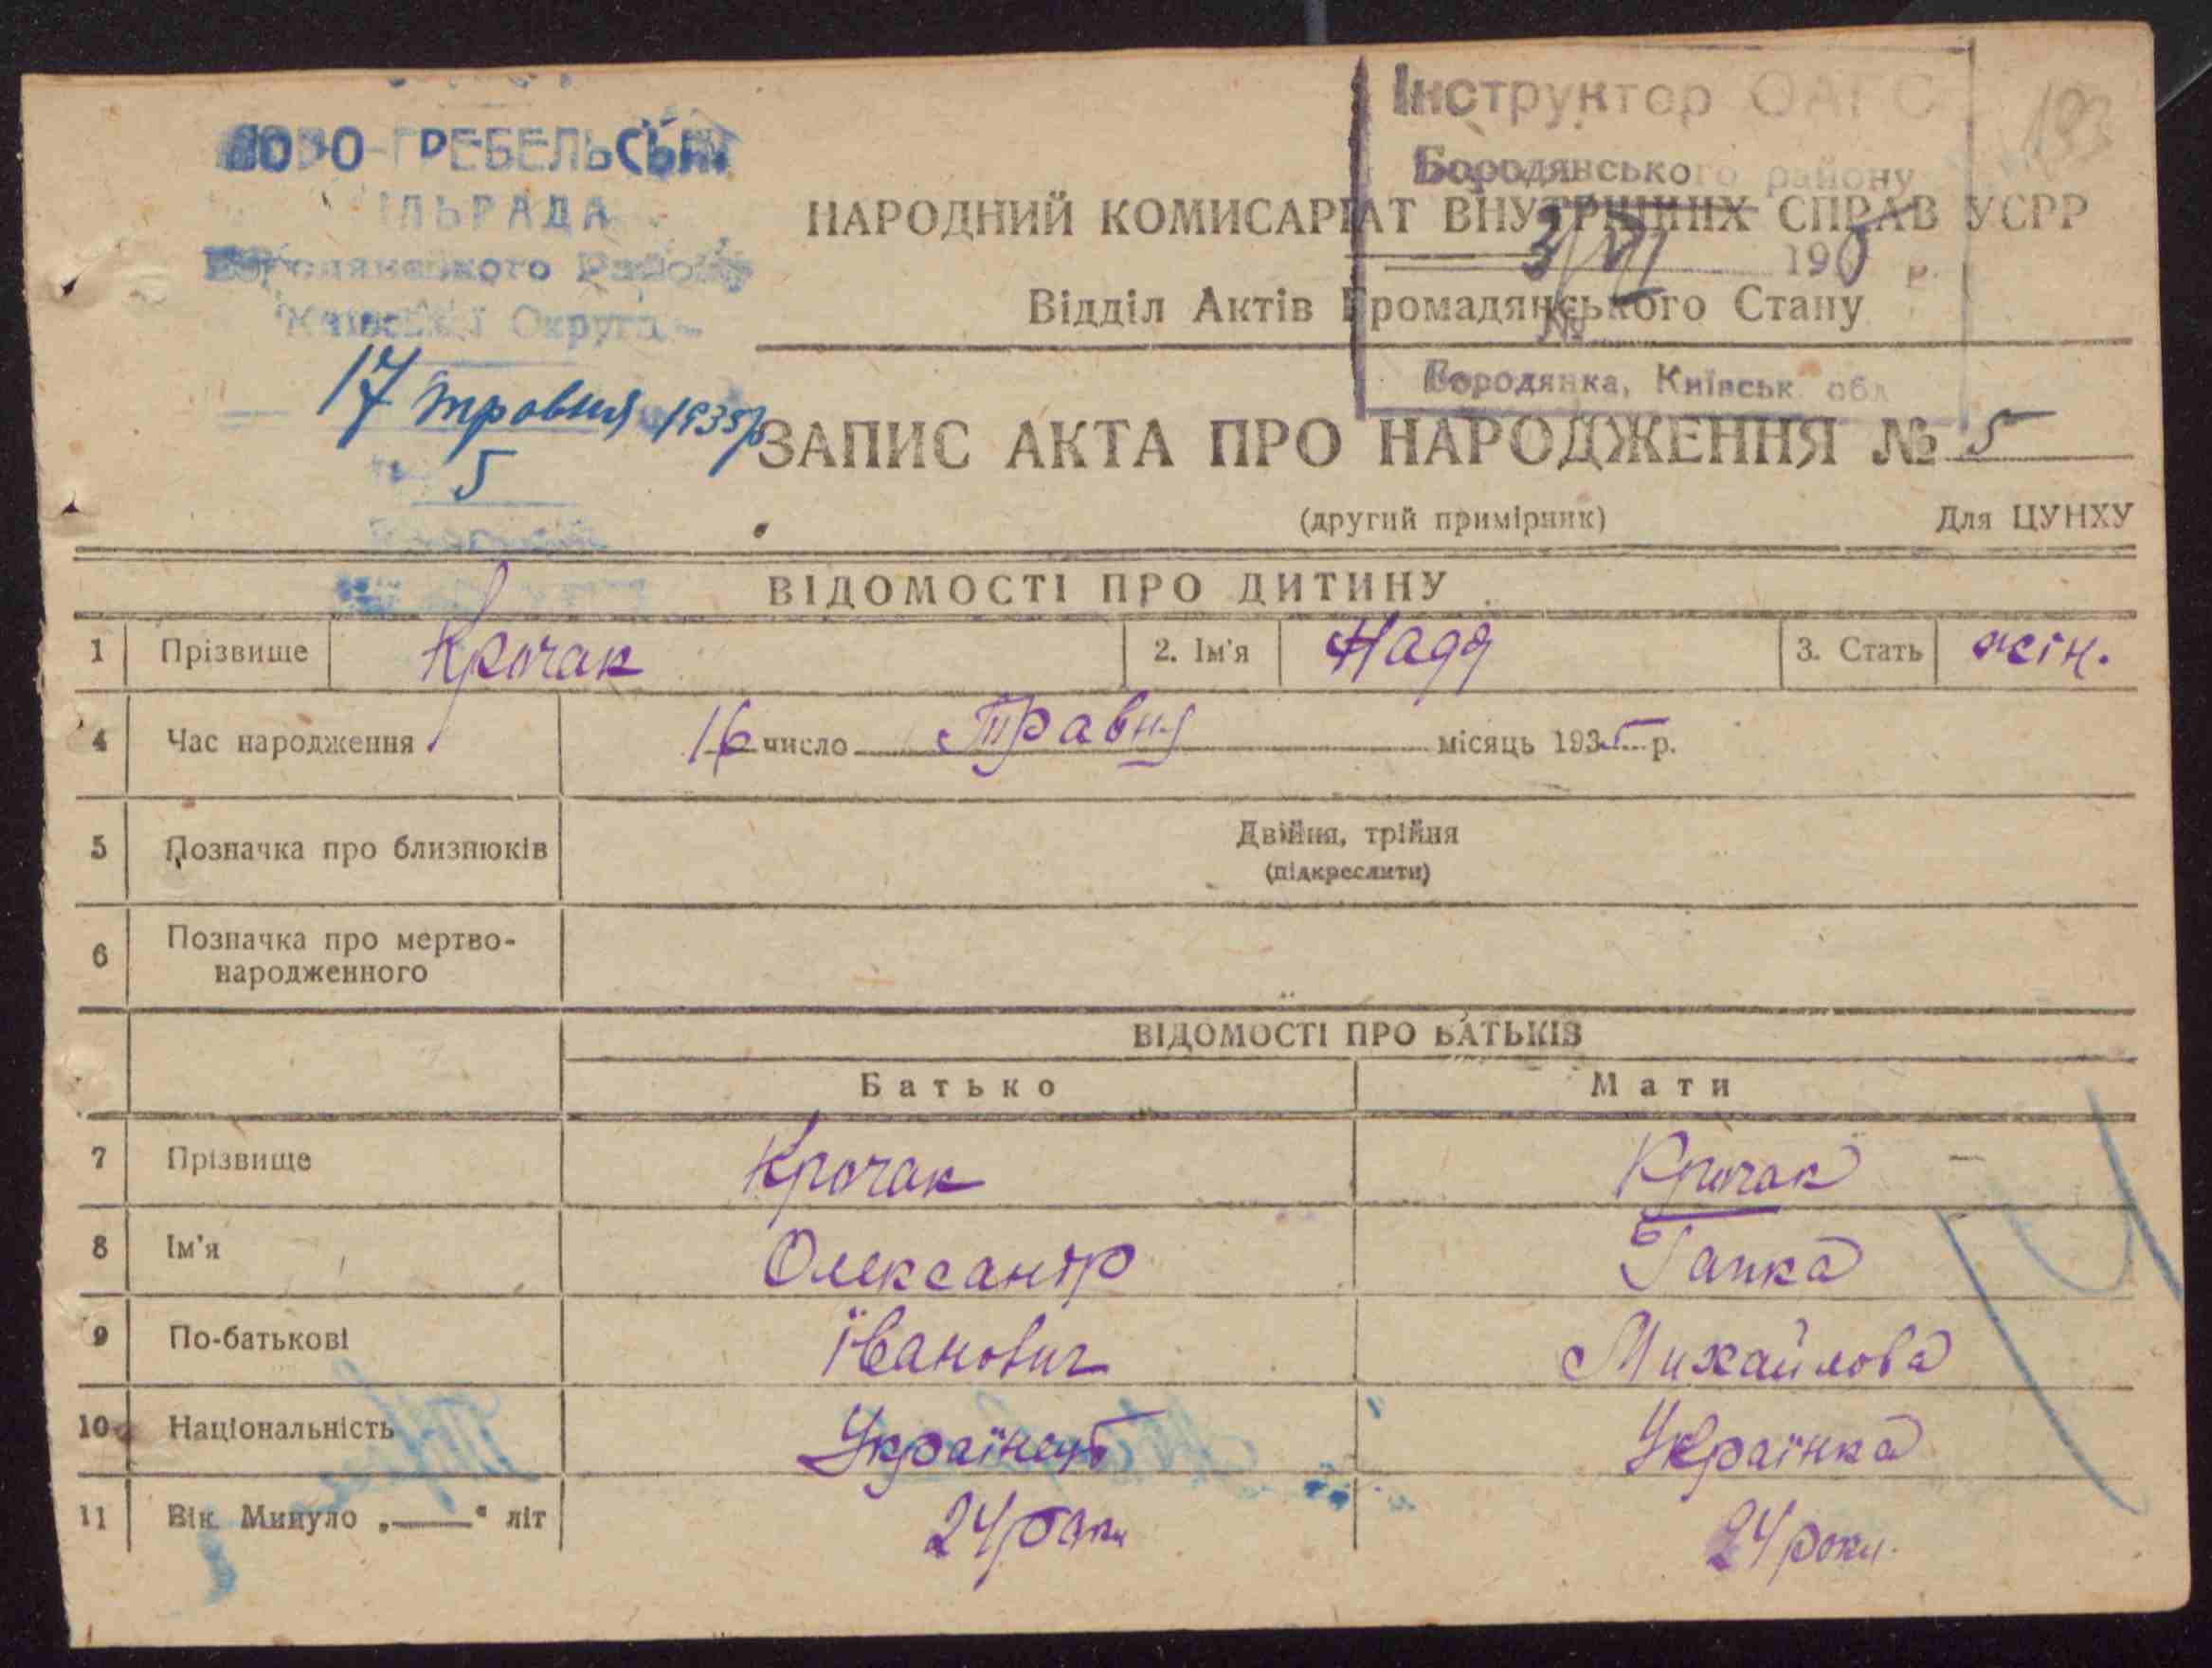 НОВО-ГРЕБЕЛЬСЬКА
СІЛЬРАДА
Бородянського Району
Київської Округи
17 травня 1935 р
5
Інструктор ОАГС
Бородянського району
3/VI 1935 р.
№
Бородянка, Київськ. обл
193
НАРОДНИЙ КОМИСАРІАТ ВНУТРІШНІХ СПРАВ УСРР
Відділ Актів Громадянського Стану
ЗАПИС АКТА ПРО НАРОДЖЕННЯ № 5
(другий примірник) Для ЦУНХУ
ВІДОМОСТІ ПРО ДИТИНУ
1 Прізвище Крочак 2. Ім'я Надя 3. Стать жін.
4 Час народження 16 число Травня місяць 1935 р.
5 Позначка про близнюків Двійня, трійня
(підкреслити)
6 Позначка про мертво-
народженного
ВІДОМОСТІ ПРО БАТЬКІВ
Батько Мати
7 Прізвище Крочак Крочак
8 Ім'я Олександр Гапка
9 По-батькові Іванович Михайлова
10 Національність Українець Українка
11 Вік. Минуло „—“ літ 24 роки 24 роки.